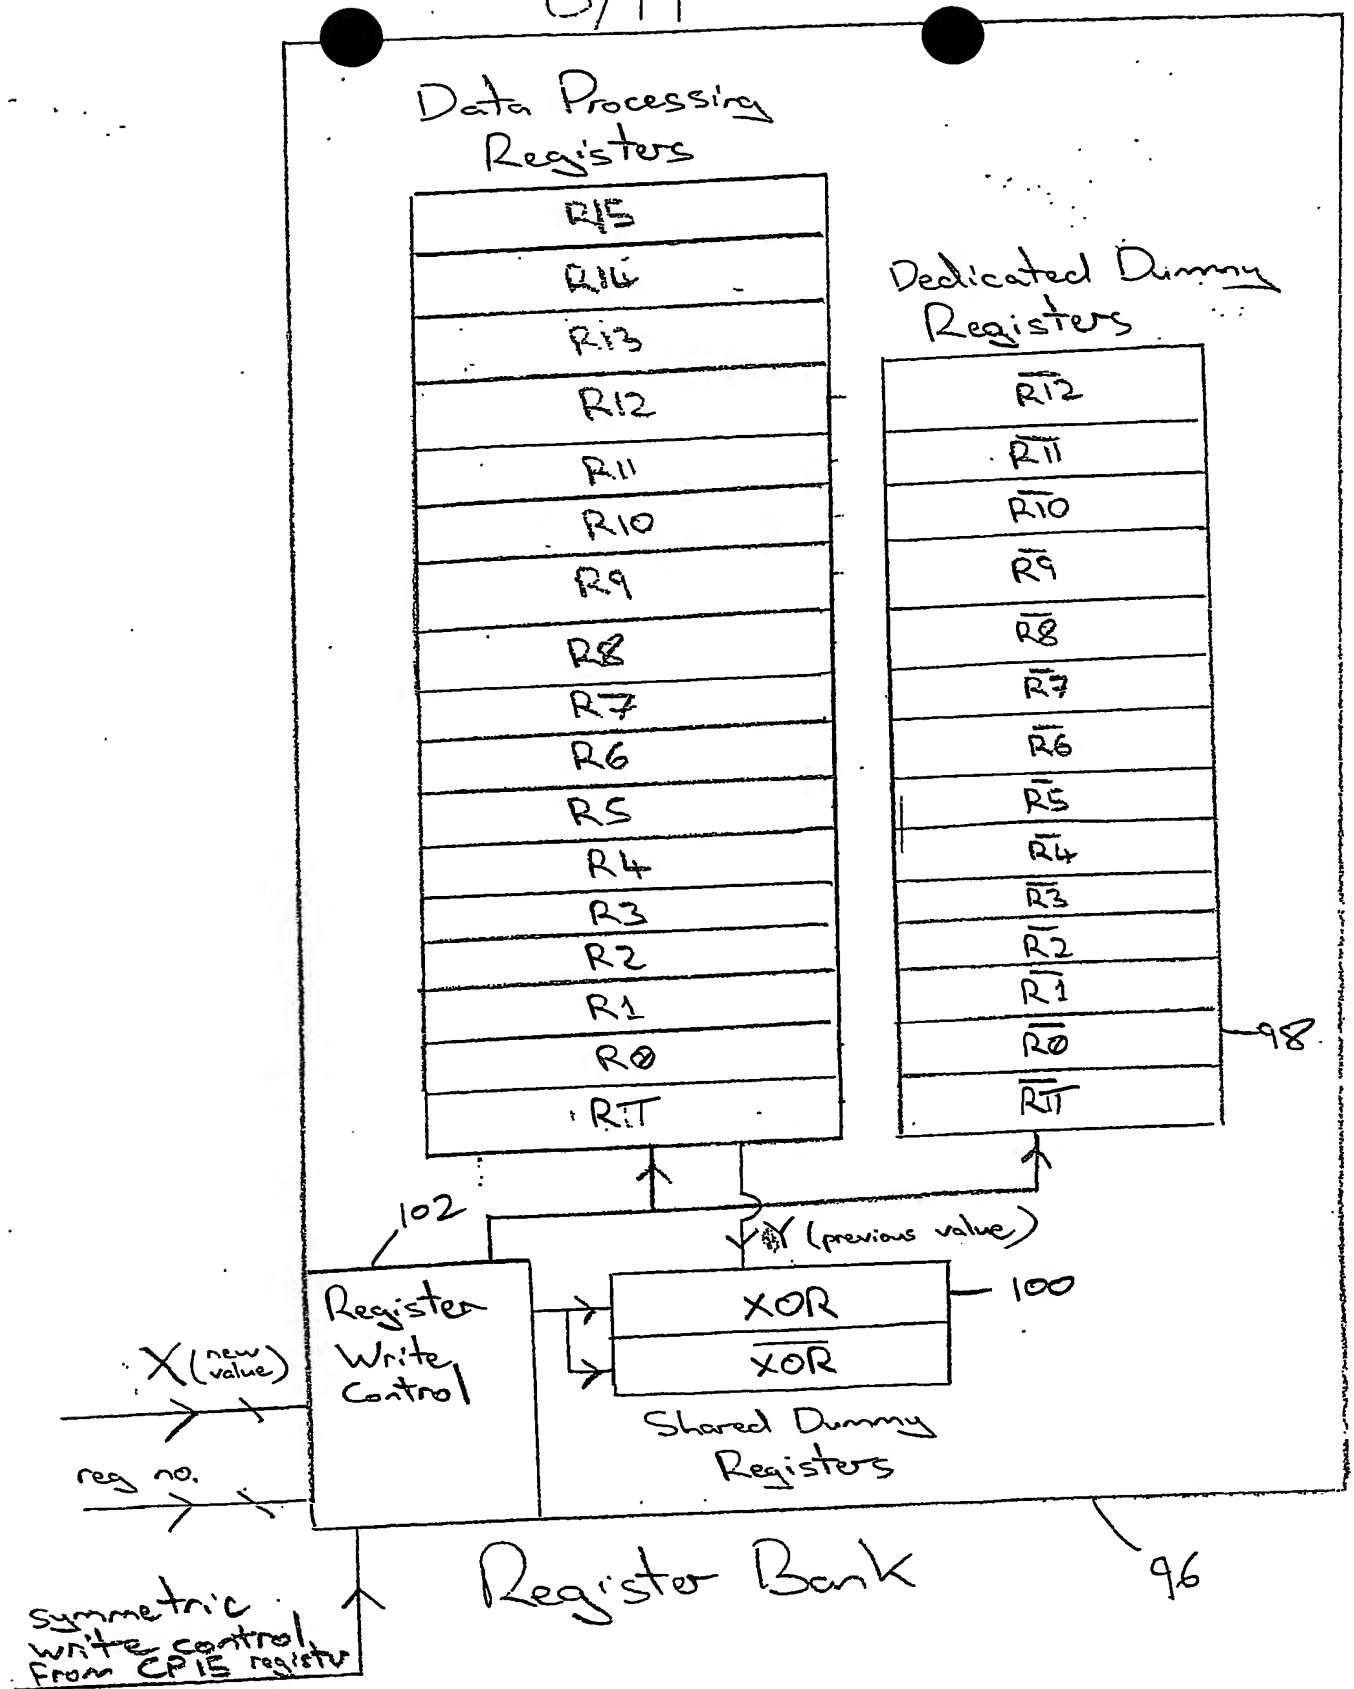 Data Processing
Registers
R15
R14
R13
R12
R11
R10
R9
R8
R7
R6
R5
R4
R3
R2
R1
R0
RT
Dedicated Dummy
Registers
R̅1̅2̅
R̅1̅1̅
R̅1̅0̅
R̅9̅
R̅8̅
R̅7̅
R̅6̅
R̅5̅
R̅4̅
R̅3̅
R̅2̅
R̅1̅
R̅0̅
R̅T̅
98
102
Y (previous value)
Register
Write
Control
XOR
X̅O̅R̅
100
X (new
value)
reg no.
Shared Dummy
Registers
symmetric
write control
from CP15 register
Register Bank
96